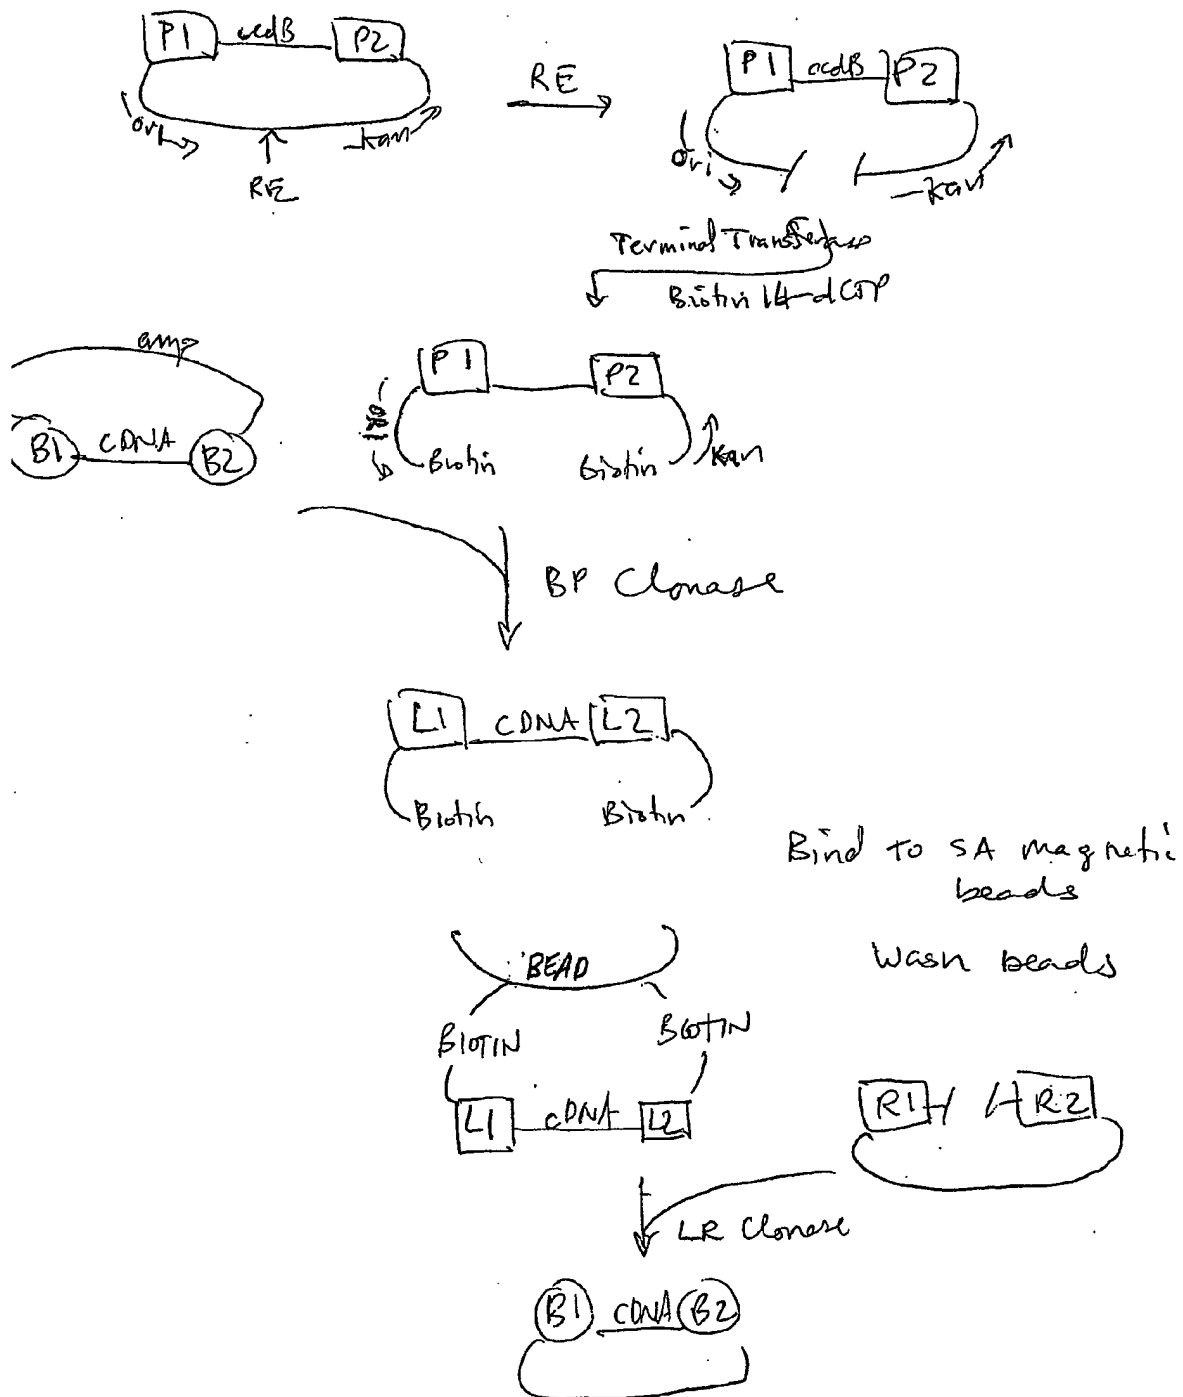 P1 ccdB P2
ori
kan
RE
RE
P1 ccdB P2
Ori
Kan
Terminal Transferase
Biotin 14-dCTP
amp
B1 cDNA B2
P1 P2
ori
Biotin Biotin Kan
BP Clonase
L1 cDNA L2
Biotin Biotin
Bind to SA magnetic
beads
Wash beads
BEAD
BIOTIN BIOTIN
L1 cDNA L2
R1 R2
LR Clonase
B1 cDNA B2